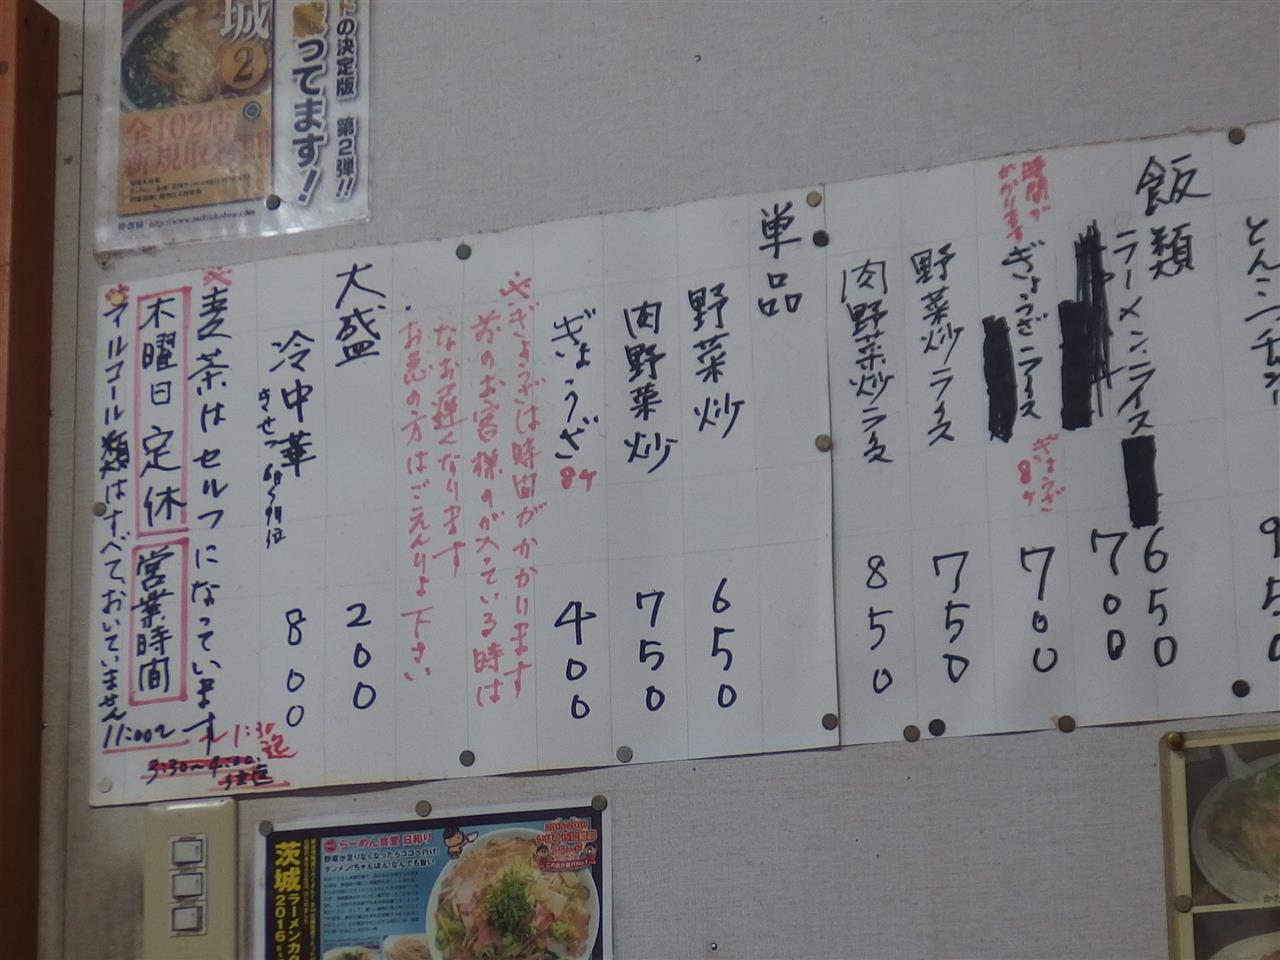 とんこつチャシュー
950
飯類
ラーメンライス
650
700
時間が
かかります
ぎょうざライス
ぎょうざ
8ケ
700
野菜炒ライス
750
肉野菜炒ライス
850
単品
野菜炒
650
肉野菜炒
750
ぎょうざ 8ケ
400
※ぎょうざは時間がかかります
お急の方はごえんりょ下さい
大盛
200
冷中華
800
※麦茶はセルフになっています
木曜日定休
営業時間
11:00〜
1:30
迄
3:30〜4:00
※アルコール類はすべて、おいていません
城
2
ドの決定版 第2弾!!
載ってます!
全102店
新規取材!!!
らーめん食堂 日和り
野菜が足りなくなったらココへ行け!
タンメン!ちゃんぽん!なんでも旨い
茨城
2016